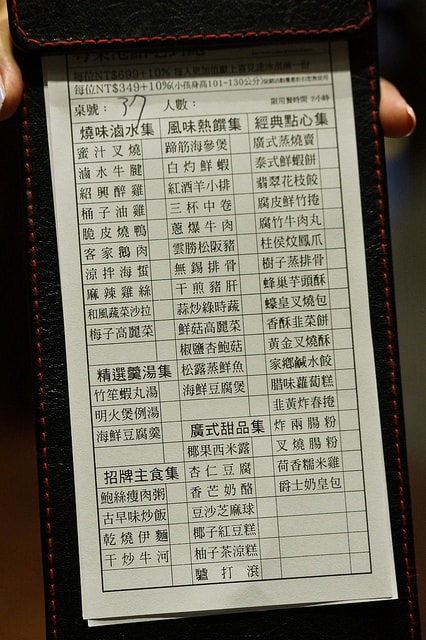 每位NT$699+10%
每位NT$349+10%(小孩身高101~130公分)
桌號： 37 人數： 限用餐時間
燒味滷水集 風味熱饌集 經典點心集
蜜汁叉燒 蹄筋海參煲 廣式蒸燒賣
滷水牛腱 白灼鮮蝦 泰式鮮蝦餅
紹興醉雞 紅酒羊小排 翡翠花枝餃
桶子油雞 三杯中卷 腐皮鮮竹捲
脆皮燒鴨 蔥爆牛肉 腐竹牛肉丸
客家鵝肉 雲勝松阪豬 柱侯炆鳳爪
涼拌海蜇 無錫排骨 樹子蒸排骨
麻辣雞絲 干煎豬肝 蜂巢芋頭酥
和風蔬菜沙拉 蒜炒綠時蔬 蠔皇叉燒包
梅子高麗菜 鮮菇高麗菜 香酥韭菜餅
椒鹽杏鮑菇 黃金叉燒酥
精選羹湯集 松露蒸鮮魚 家鄉鹹水餃
竹笙蝦丸湯 海鮮豆腐煲 腊味蘿蔔糕
明火煲例湯 韭黃炸春捲
海鮮豆腐羹 廣式甜品集 炸兩腸粉
椰果西米露 叉燒腸粉
招牌主食集 杏仁豆腐 荷香糯米雞
鮑絲瘦肉粥 香芒奶酪 爵士奶皇包
古早味炒飯 豆沙芝麻球
乾燒伊麵 椰子紅豆糕
干炒牛河 柚子茶涼糕
驢打滾